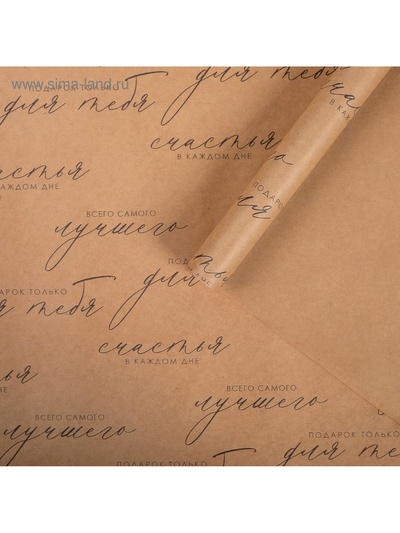 www.sima-land.ru
ПОДАРОК ТОЛЬКО
для тебя
для тебя
ча
В КАЖ
счастья
В КАЖДОМ ДНЕ
КАЖДОМ ДНЕ
ПОДАРО
ВСЕГО САМОГО
лучшего
ПОДА
для
АРОК ТОЛЬКО
тебя
счастья
В КАЖДОМ ДНЕ
ВСЕГО САМОГО
лучшего
ВСЕГО САМОГО
лучшего
ПОДАРОК ТОЛЬКО
для тебя
ПОДАРОК ТОЛЬКО